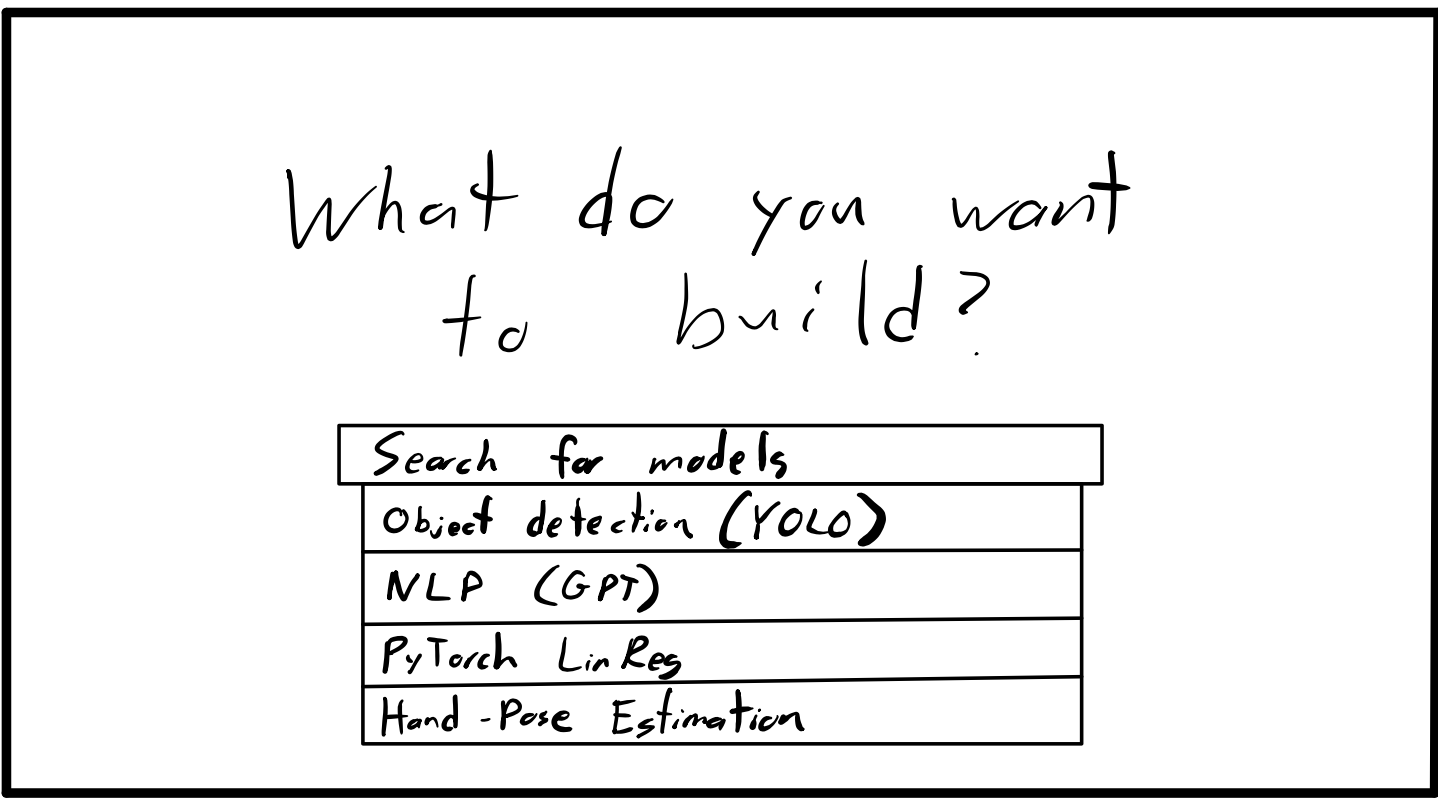 What do you want
to build?
Search for models
Object detection (YOLO)
NLP (GPT)
PyTorch LinReg
Hand-Pose Estimation